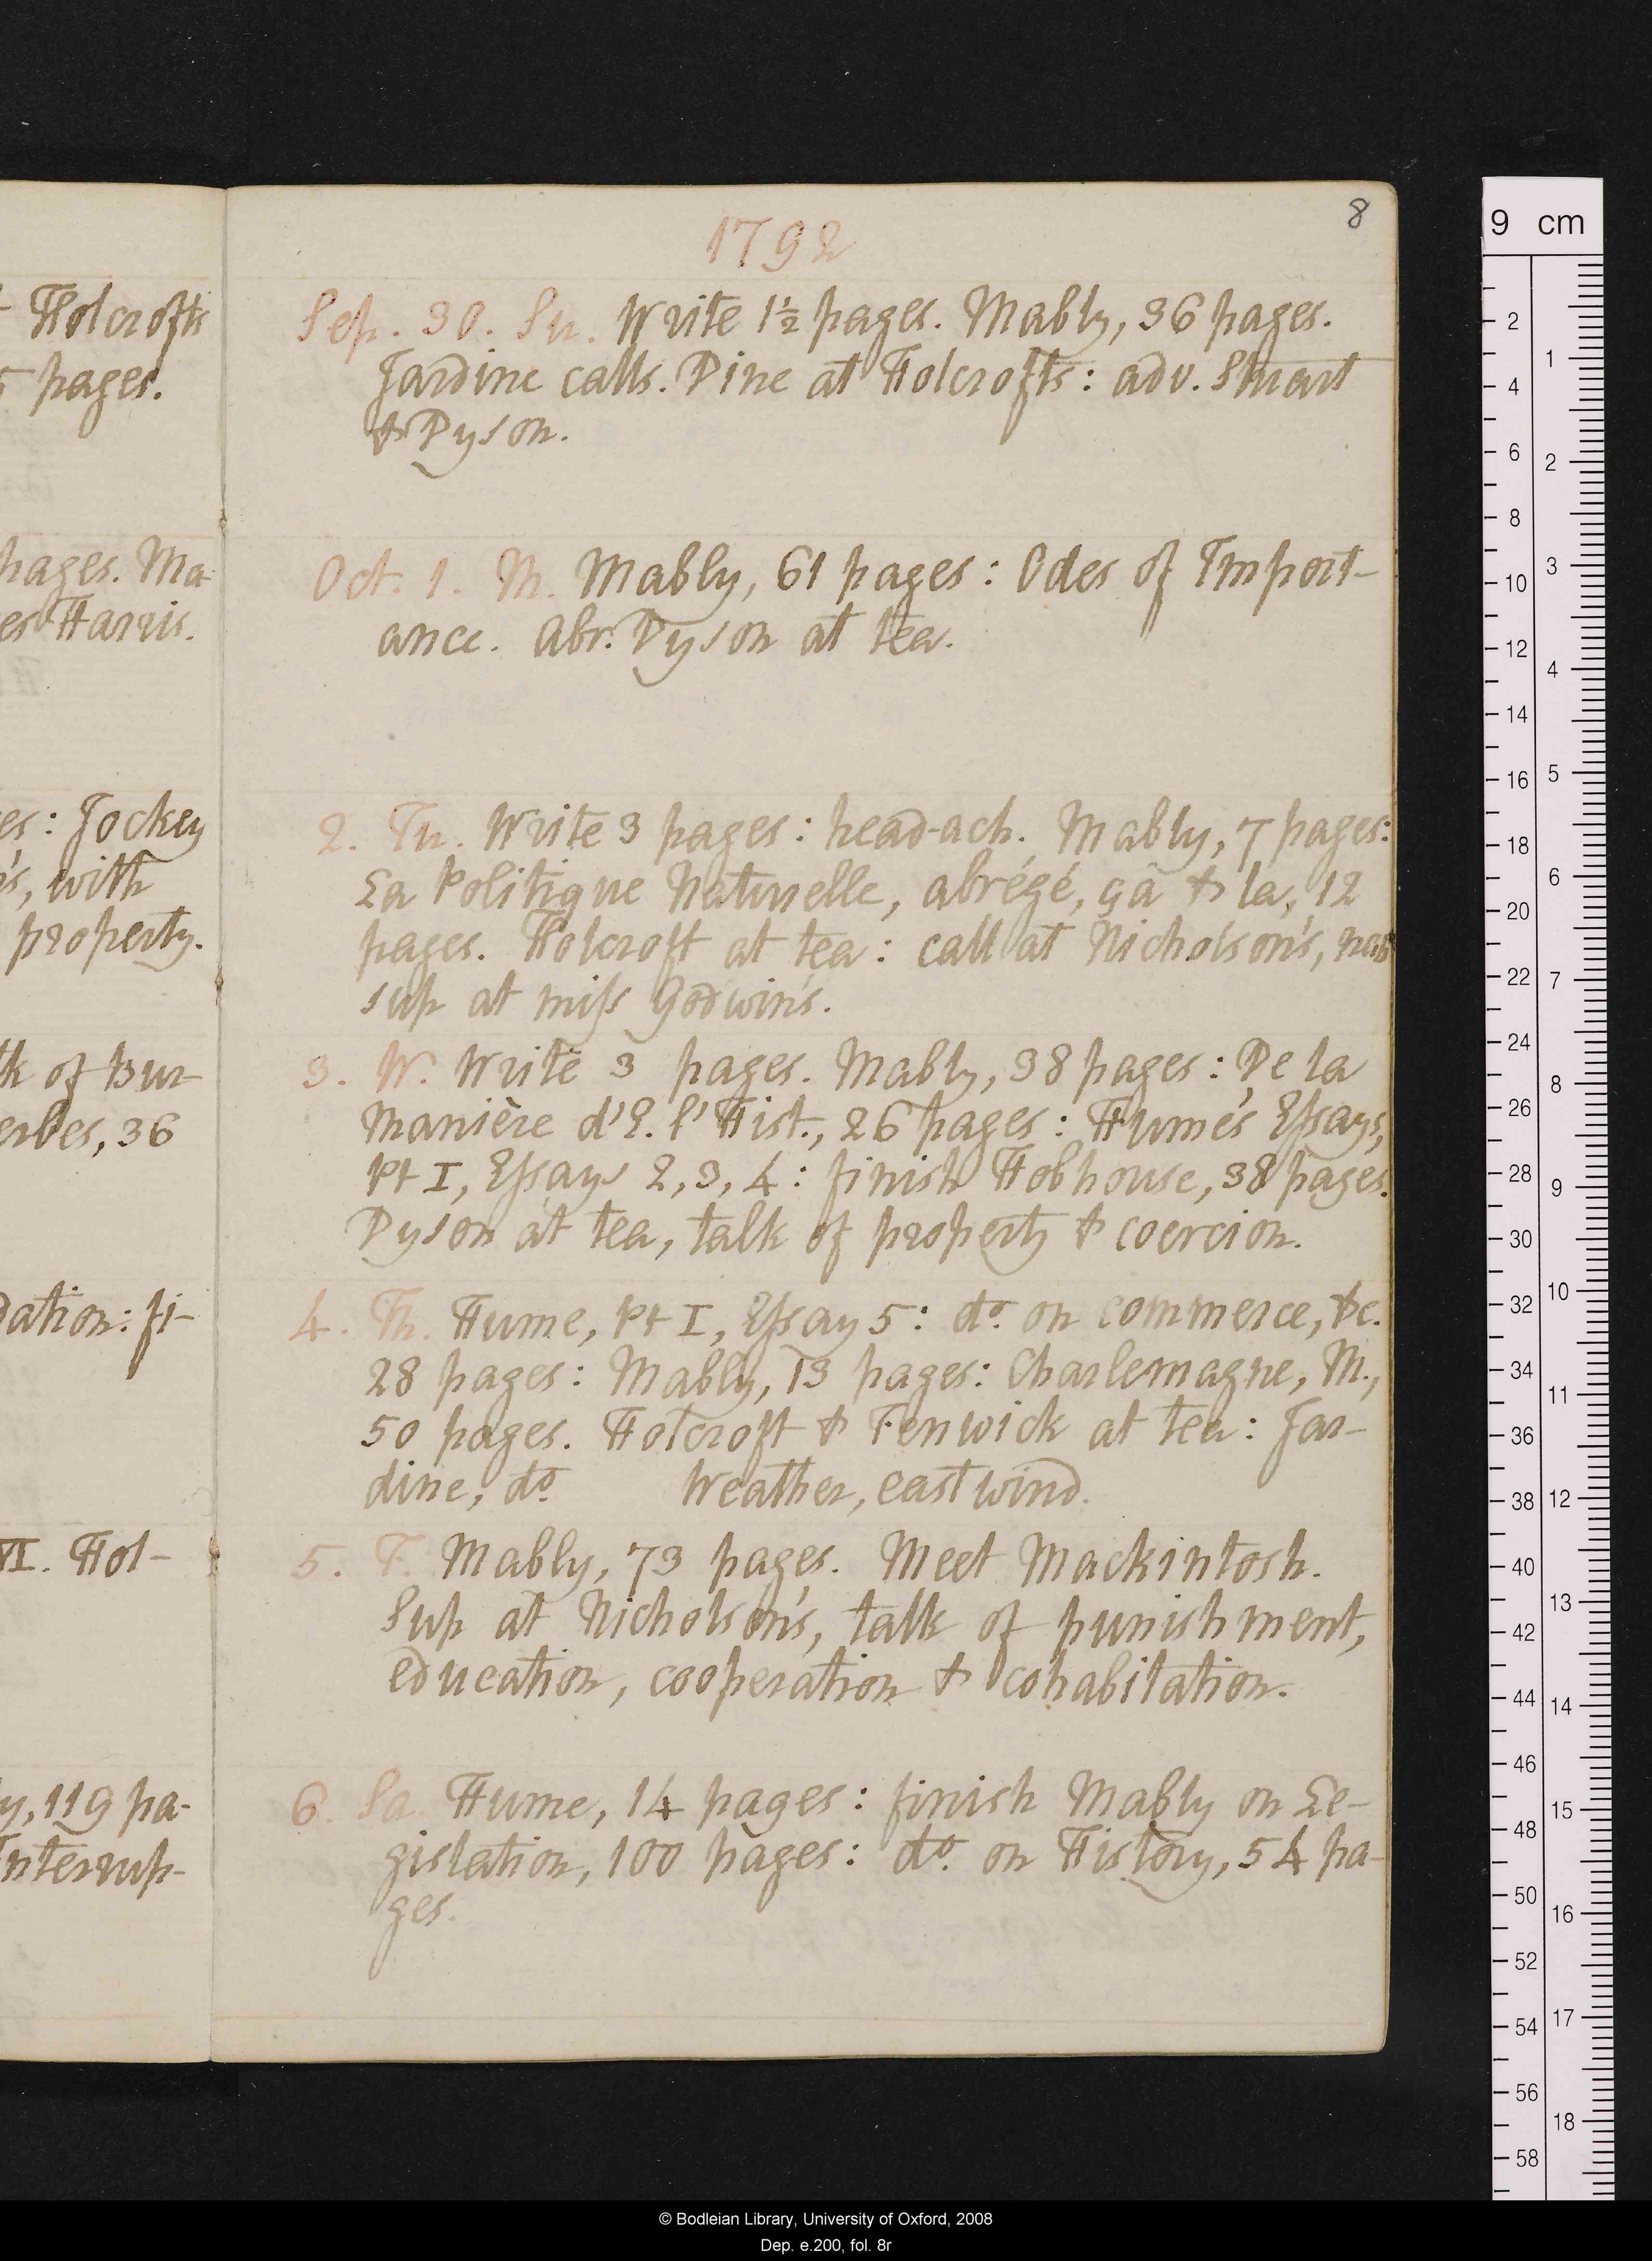 Holcrofts
5 pages.
pages. Ma-
Harris.
es: Jockey
's, with
property.
of Bur-
36
dation: fi-
VI. Hol-
y, 119 pa-
Interrup-
8
1792
Sep. 30. Su. Write 1½ pages. Mably, 36 pages.
Jardine calls. Dine at Holcrofts: adv. Stuart
& Dyson.
Oct. 1. M. Mably, 61 pages: Odes of Import-
ance. Abr. Dyson at tea.
2. Tu. Write 3 pages: head-ach. Mably, 7 pages:
La Politique Naturelle, abrégé, çà & la, 12
pages. Holcroft at tea: call at Nicholson's, nah
sup at miss Godwin's.
3. W. Write 3 pages. Mably, 38 pages: De la
Manière d'E. l'Hist., 26 pages: Hume's Essays,
Pt I, Essays 2, 3, 4: finish Hobhouse, 38 pages.
Dyson at tea, talk of property & coercion.
4. Th. Hume, Pt I, Essay 5: do. on commerce, &c.
28 pages: Mably, 13 pages: Charlemagne, M.,
50 pages. Holcroft & Fenwick at tea: Jar-
dine, do. Weather, east wind.
5. F. Mably, 73 pages. Meet Mackintosh.
Sup at Nicholson's, talk of punishment,
education, cooperation & cohabitation.
6. Sa. Hume, 14 pages: finish Mably on Le-
gislation, 100 pages: do. on History, 54 pa-
ges.
9 cm
2
4
6
8
10
12
14
16
18
20
22
24
26
28
30
32
34
36
38
40
42
44
46
48
50
52
54
56
58
1
2
3
4
5
6
7
8
9
10
11
12
13
14
15
16
17
18
© Bodleian Library, University of Oxford, 2008
Dep. e.200, fol. 8r